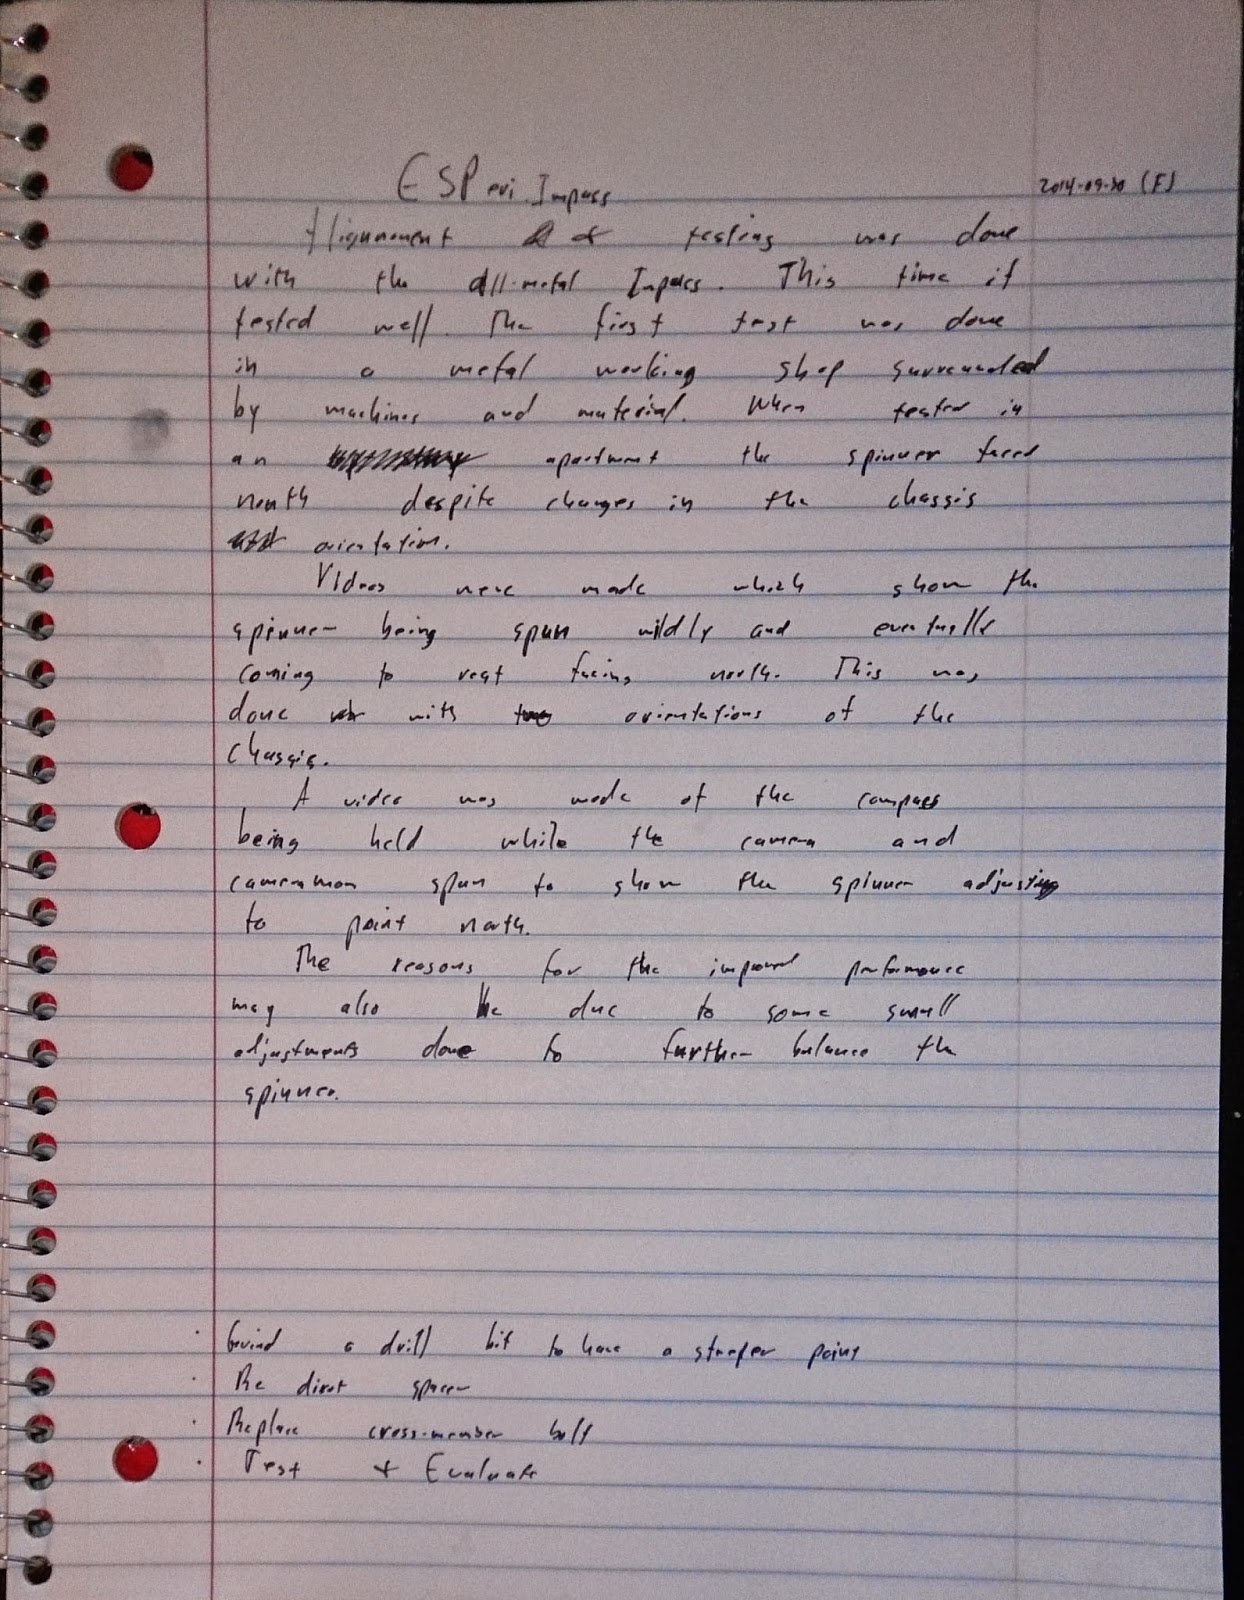 ESPeri.Impass 2014-09-30 (F)
Alignmement & testing was done
with the All-metal Impass. This time it
tested well. The first test was done
in a metal working shop surrounded
by machines and material. When tested in
an apartment the spinner faced
north despite changes in the chassis
orientation.
Videos were made which show the
spinner being spun wildly and eventually
coming to rest facing north. This was
done with orientations of the
chassis.
A video was made of the compass
being held while the camera and
cameraman spun to show the spinner adjusting
to point north.
The reasons for the improved performance
may also be due to some small
adjustments done to further balance the
spinner.
· Grind a drill bit to have a steeper point
· Re divot spacer
· Replace cross-member bolt
· Test + Evaluate